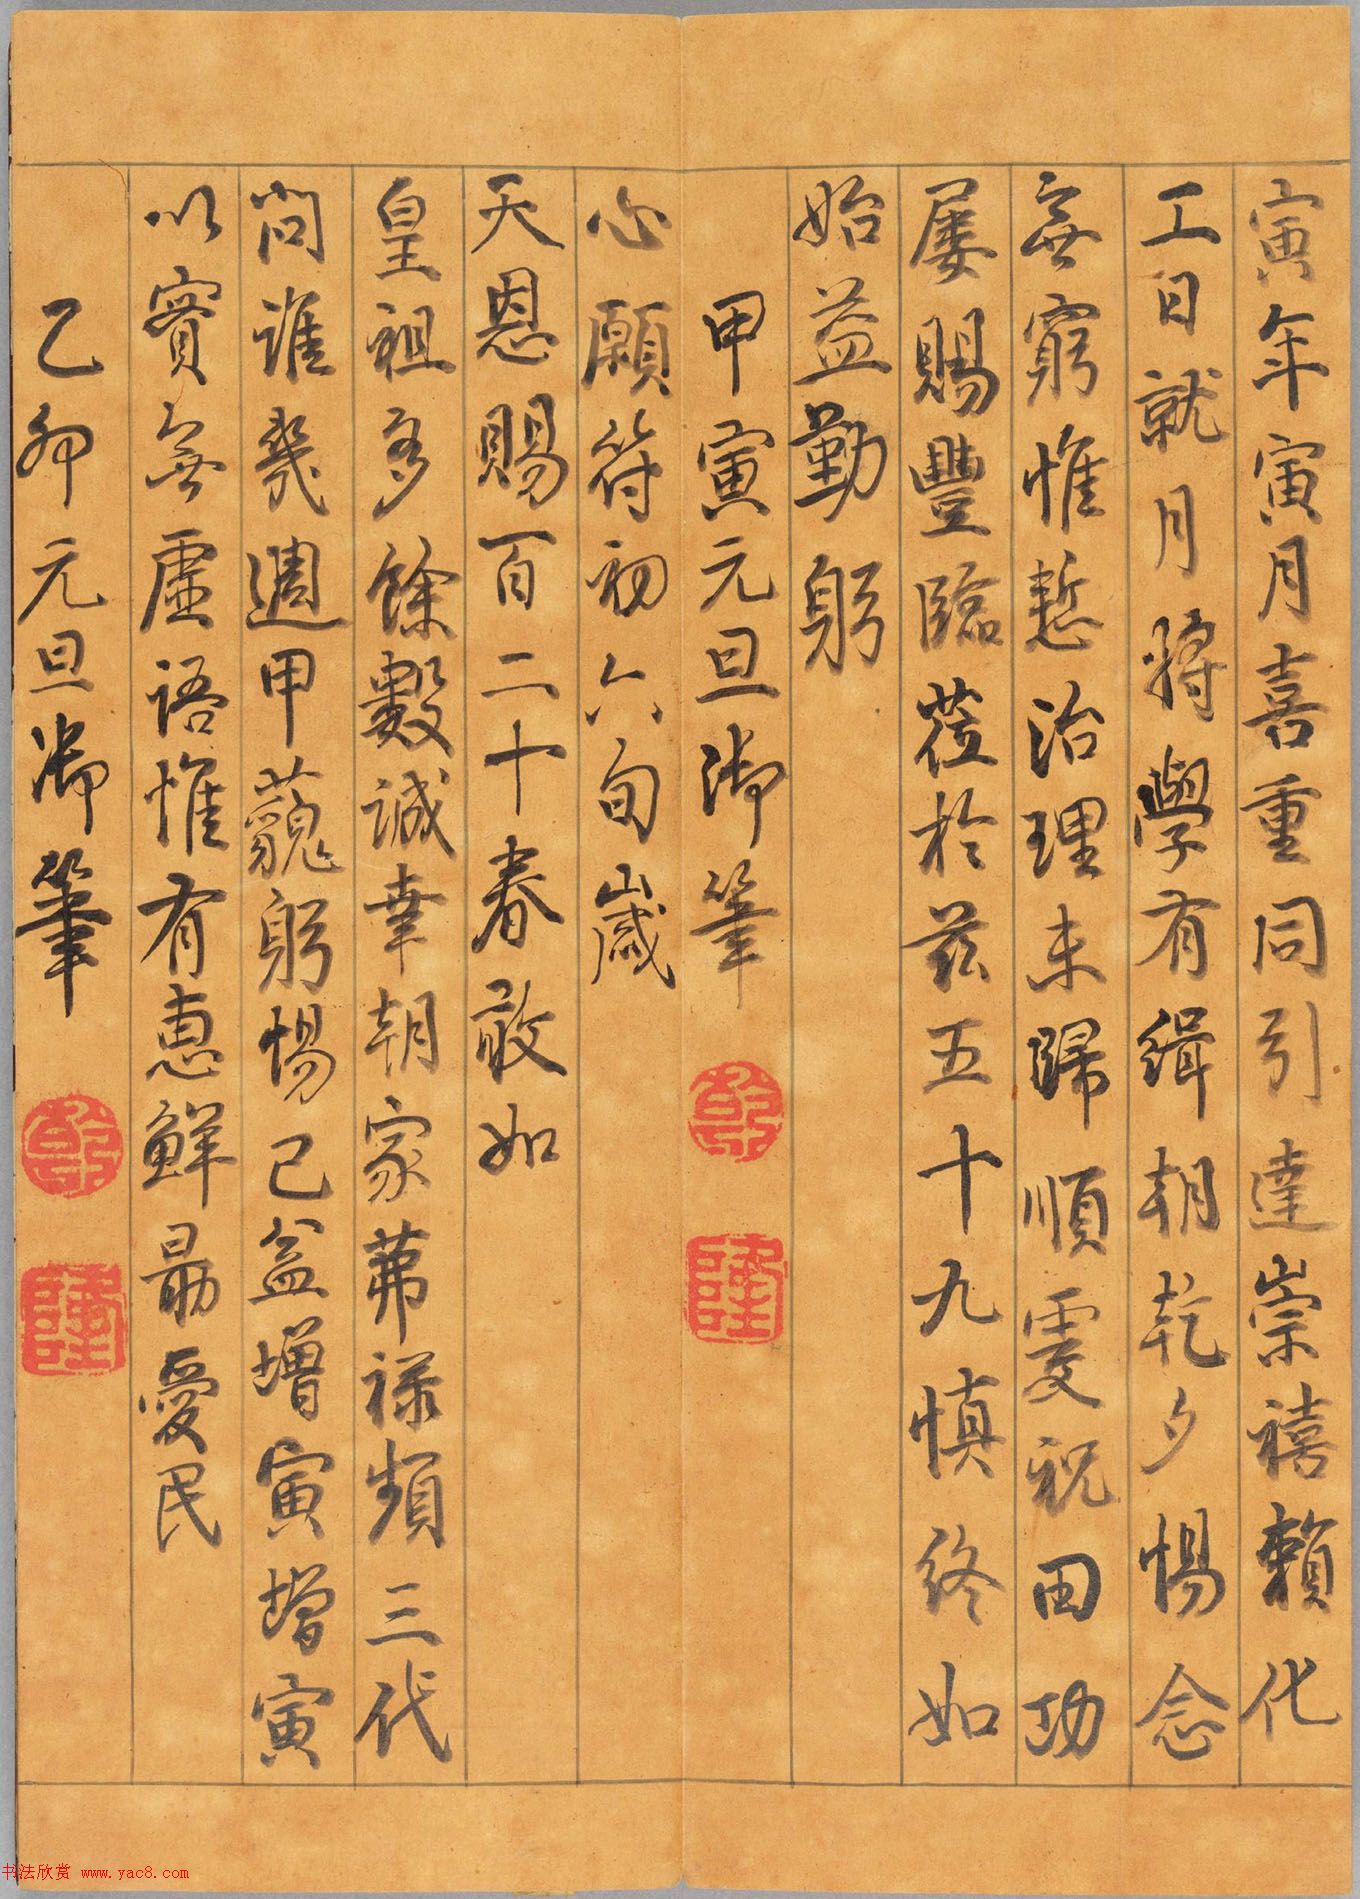 寅年寅月喜重同引達崇禧賴化
工日就月將學有緝朝乾夕惕念
無窮惟慙治理未歸順更祝田功
屡賜豐臨莅於茲五十九慎終如
始益勤躬
甲寅元旦御筆
乾
隆
心願符初六旬歲
天恩賜百二十春敢如
皇祖多餘數誠幸朝家茀祿頻三代
問誰幾週甲藐躬惕已益增寅增寅
以實無虛語惟有惠鮮勗愛民
乙卯元旦御筆
乾
隆
书法欣赏 www.yac8.com